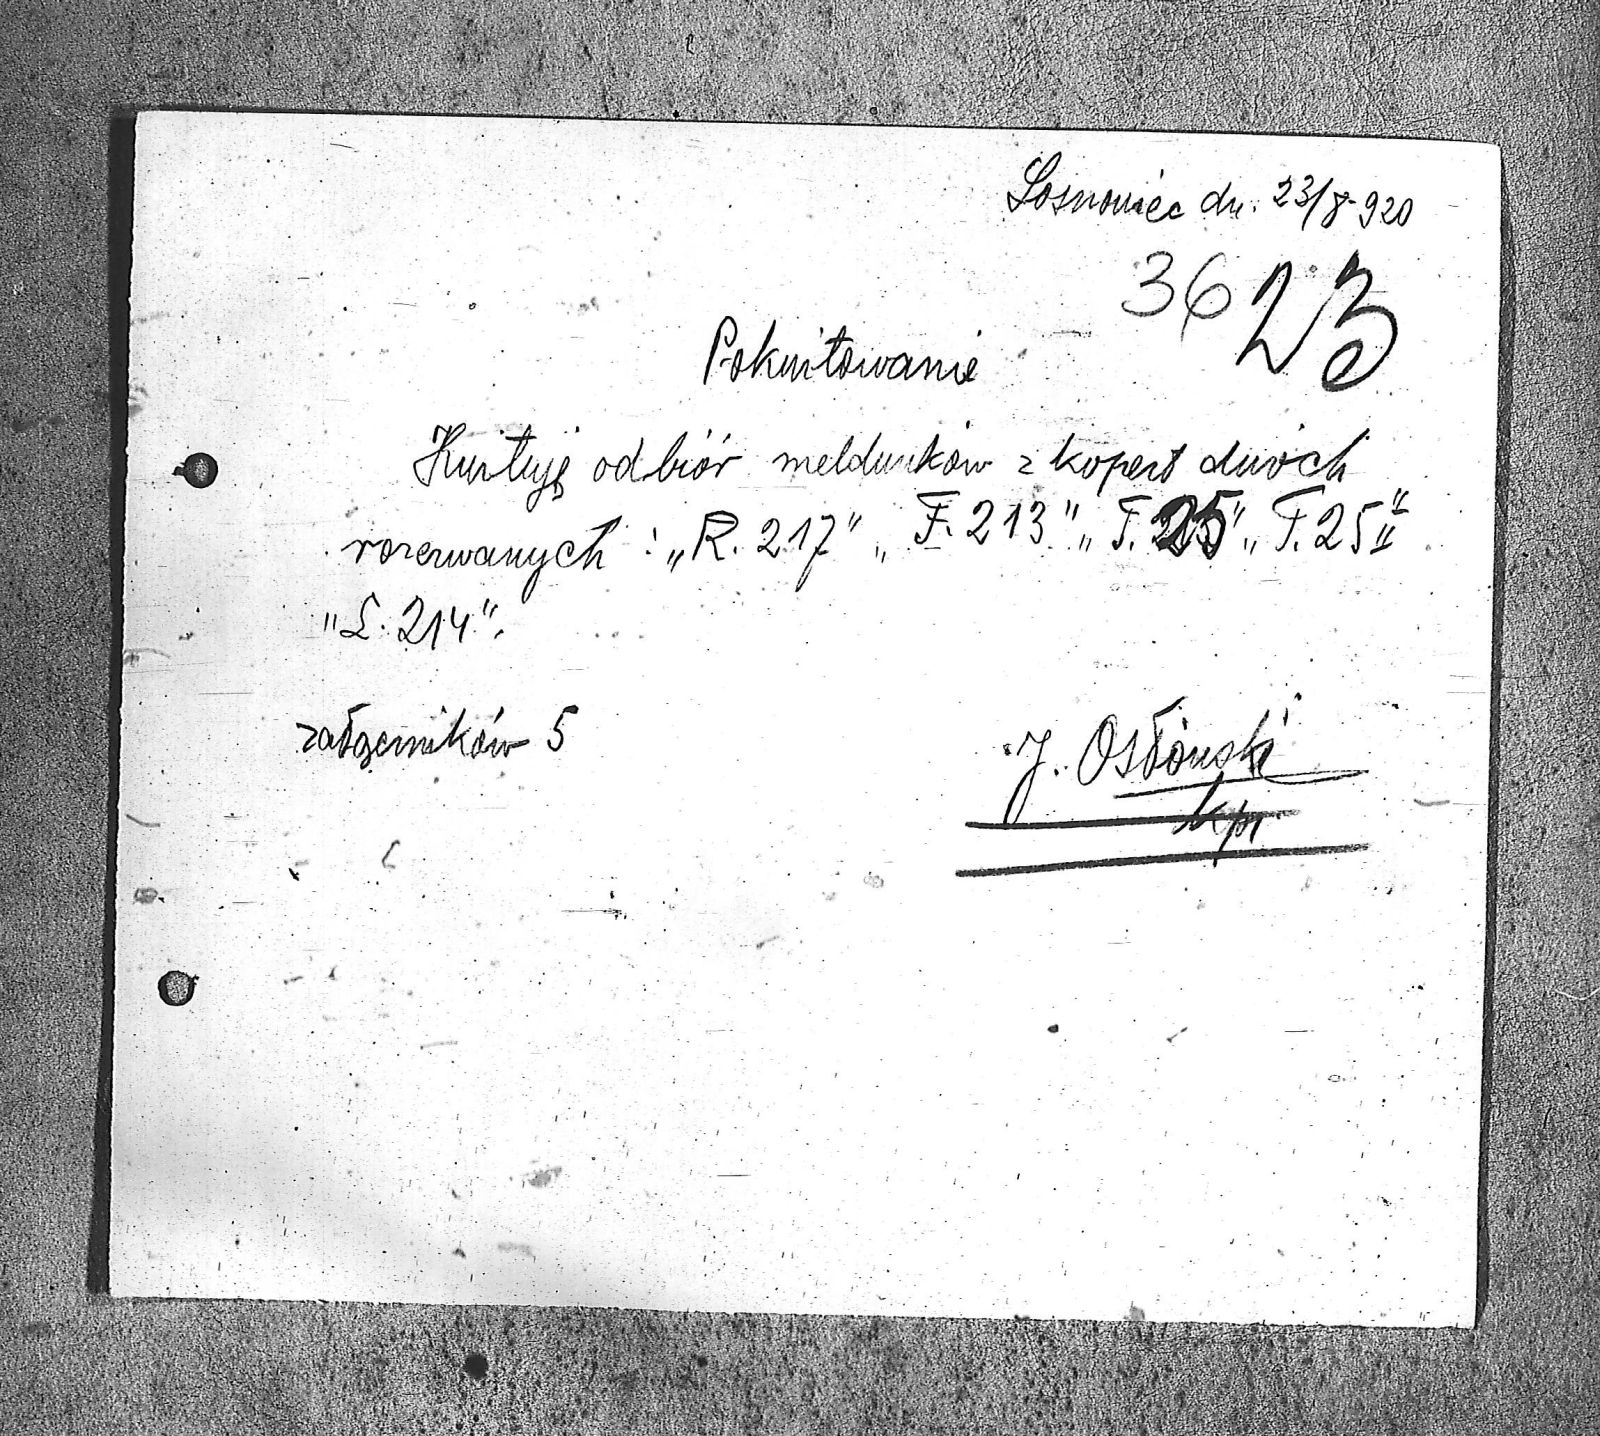 Sosnowiec dn. 23/8 920
36 23
Pokwitowanie
Kwituję odbiór meldunków z kopert dwóch
rozerwanych : „R. 217” „F. 213” „T. 25” „T. 25 II”
"L. 214".
załączników 5
J. Osłoński
kpr.